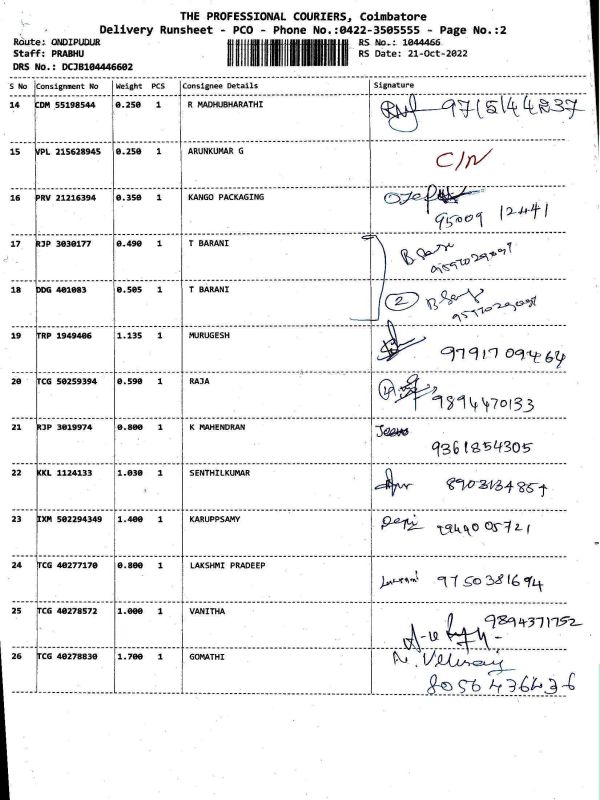 THE PROFESSIONAL COURIERS, Coimbatore
Delivery Runsheet - PCO - Phone No.:0422-3505555 - Page No.:2
Route: ONDIPUDUR RS No.: 1044466
Staff: PRABHU RS Date: 21-Oct-2022
DRS No.: DCJB104446602
S No Consignment No Weight PCS Consignee Details Signature
14 CDM 55198544 0.250 1 R MADHUBHARATHI
15 VPL 215628945 0.250 1 ARUNKUMAR G C/N
16 PRV 21216394 0.350 1 KANGO PACKAGING
95009 12441
17 RJP 3030177 0.490 1 T BARANI
18 DDG 401083 0.505 1 T BARANI 2
19 TRP 1949406 1.135 1 MURUGESH
9791709464
20 TCG 50259394 0.590 1 RAJA
9894470133
21 RJP 3019974 0.800 1 K MAHENDRAN
9361854305
22 KKL 1124133 1.030 1 SENTHILKUMAR
23 IXM 502294349 1.400 1 KARUPPSAMY
24 TCG 40277170 0.800 1 LAKSHMI PRADEEP 9750381694
25 TCG 40278572 1.000 1 VANITHA 9894371752
26 TCG 40278830 1.700 1 GOMATHI
8056436436